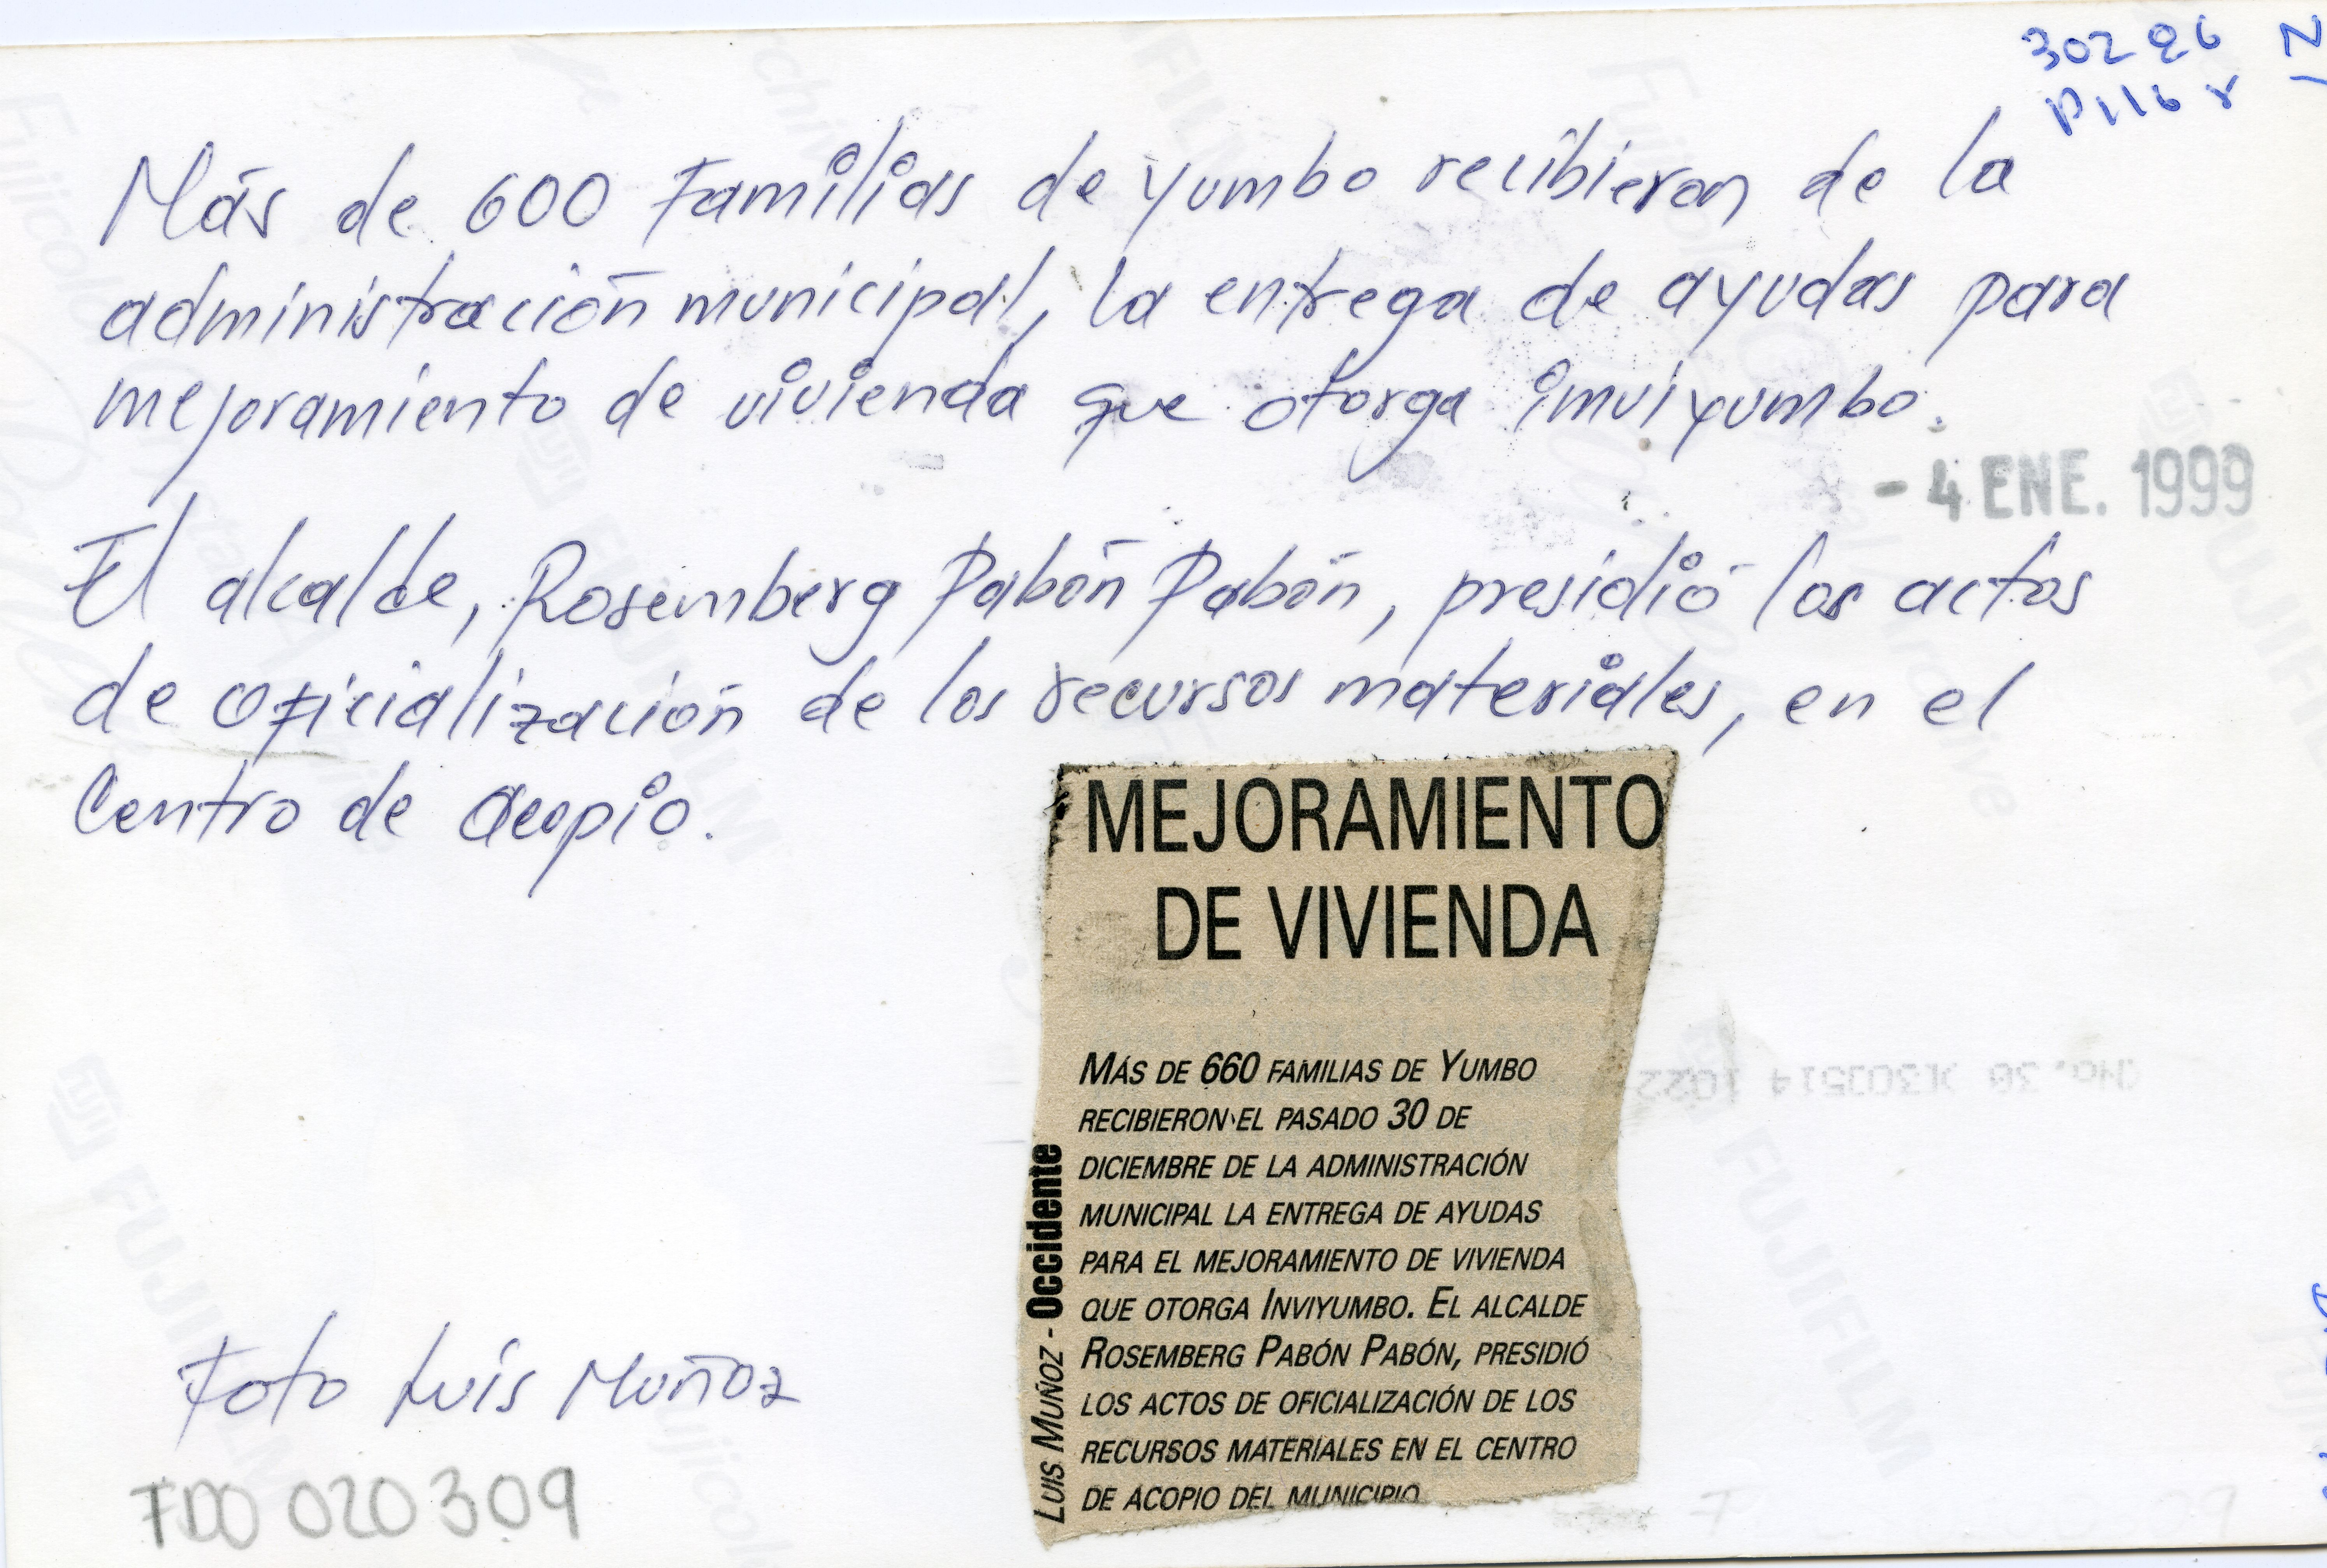 30296
P116 r
Más de 600 Familias de Yumbo recibieron de la
administración municipal, la entrega de ayudas para
mejoramiento de vivienda que otorga imviyumbo.
- 4 ENE. 1999
El alcalde, Rosemberg Pabón Pabón, presidió los actos
de oficialización de los recursos materiales, en el
Centro de acopio.
MEJORAMIENTO
DE VIVIENDA
MÁS DE 660 FAMILIAS DE YUMBO
RECIBIERON EL PASADO 30 DE
DICIEMBRE DE LA ADMINISTRACIÓN
MUNICIPAL LA ENTREGA DE AYUDAS
PARA EL MEJORAMIENTO DE VIVIENDA
QUE OTORGA INVIYUMBO. EL ALCALDE
ROSEMBERG PABÓN PABÓN, PRESIDIÓ
LOS ACTOS DE OFICIALIZACIÓN DE LOS
RECURSOS MATERIALES EN EL CENTRO
DE ACOPIO DEL MUNICIPIO
LUIS MUÑOZ - Occidente
Foto Luís Muñoz
FDO 020309
FUJIFILM
FUJIFILM
FUJIFILM
FUJIFILM